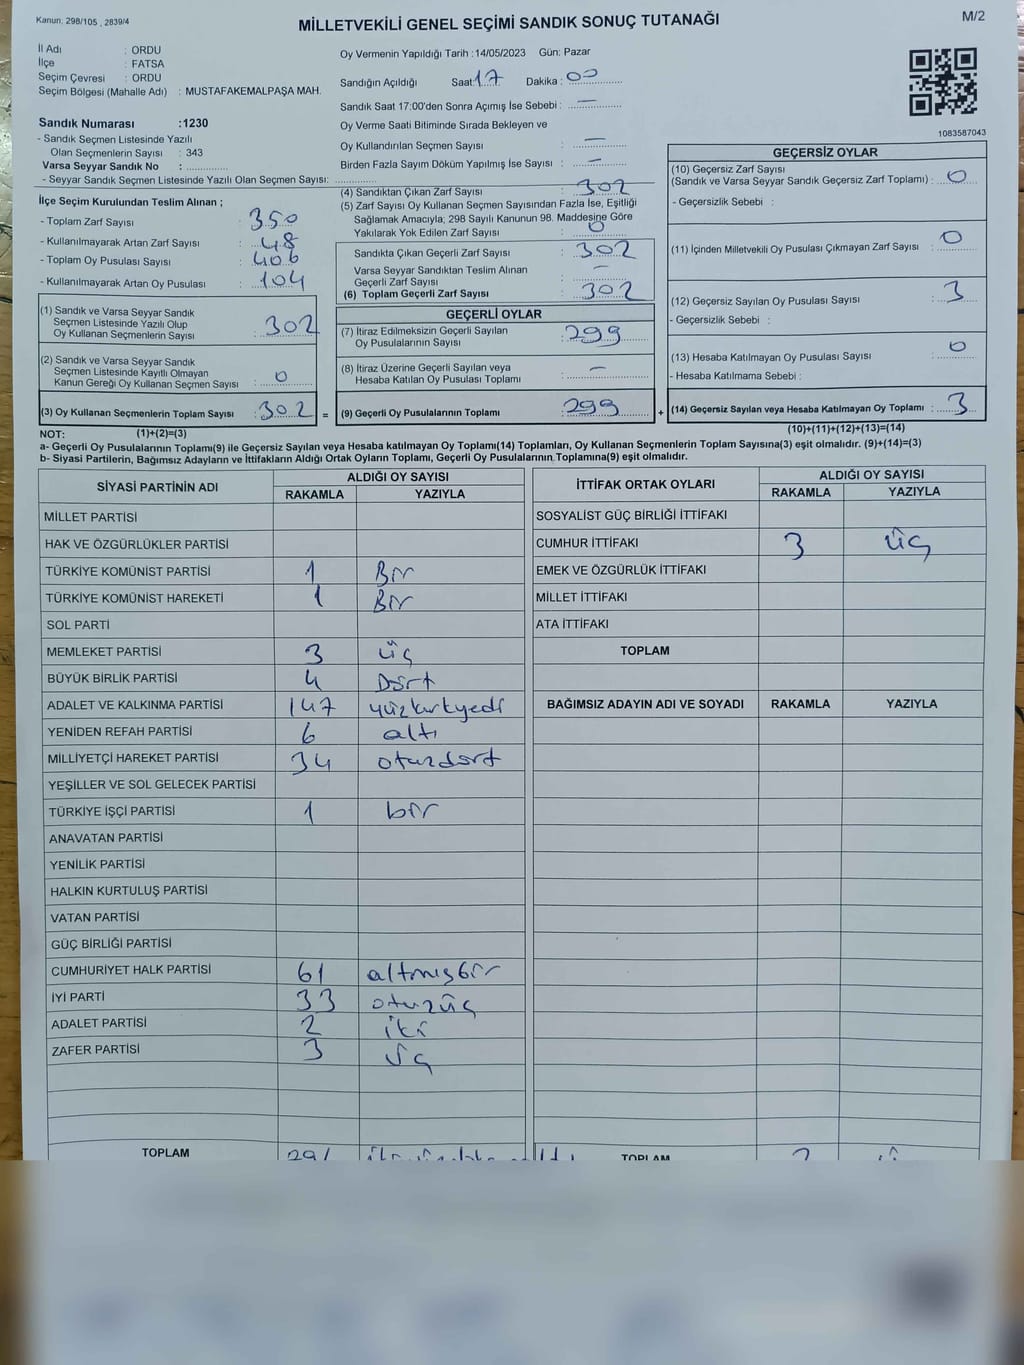 Kanun: 298/105 , 2839/4
MİLLETVEKİLİ GENEL SEÇİMİ SANDIK SONUÇ TUTANAĞI
M/2
İl Adı : ORDU
İlçe : FATSA
Seçim Çevresi : ORDU
Seçim Bölgesi (Mahalle Adı) : MUSTAFAKEMALPAŞA MAH.
Oy Vermenin Yapıldığı Tarih : 14/05/2023 Gün: Pazar
Sandığın Açıldığı Saat: 17 Dakika : 00
Sandık Saat 17:00'den Sonra Açımış İse Sebebi : —
Oy Verme Saati Bitiminde Sırada Bekleyen ve
Oy Kullandırılan Seçmen Sayısı : —
Birden Fazla Sayım Döküm Yapılmış İse Sayısı : —
1083587043
Sandık Numarası :1230
- Sandık Seçmen Listesinde Yazılı
Olan Seçmenlerin Sayısı : 343
Varsa Seyyar Sandık No :
- Seyyar Sandık Seçmen Listesinde Yazılı Olan Seçmen Sayısı:
İlçe Seçim Kurulundan Teslim Alınan ;
- Toplam Zarf Sayısı : 350
- Kullanılmayarak Artan Zarf Sayısı : 48
- Toplam Oy Pusulası Sayısı : 406
- Kullanılmayarak Artan Oy Pusulası : 104
(1) Sandık ve Varsa Seyyar Sandık
Seçmen Listesinde Yazılı Olup
Oy Kullanan Seçmenlerin Sayısı : 302
(2) Sandık ve Varsa Seyyar Sandık
Seçmen Listesinde Kayıtlı Olmayan
Kanun Gereği Oy Kullanan Seçmen Sayısı : 0
(3) Oy Kullanan Seçmenlerin Toplam Sayısı : 302 =
(4) Sandıktan Çıkan Zarf Sayısı : 302
(5) Zarf Sayısı Oy Kullanan Seçmen Sayısından Fazla İse, Eşitliği
Sağlamak Amacıyla; 298 Sayılı Kanunun 98. Maddesine Göre
Yakılarak Yok Edilen Zarf Sayısı : 0
Sandıkta Çıkan Geçerli Zarf Sayısı : 302
Varsa Seyyar Sandıktan Teslim Alınan
Geçerli Zarf Sayısı : —
(6) Toplam Geçerli Zarf Sayısı : 302
GEÇERLİ OYLAR
(7) İtiraz Edilmeksizin Geçerli Sayılan
Oy Pusulalarının Sayısı : 299
(8) İtiraz Üzerine Geçerli Sayılan veya
Hesaba Katılan Oy Pusulası Toplamı : —
(9) Geçerli Oy Pusulalarının Toplamı : 299 +
GEÇERSİZ OYLAR
(10) Geçersiz Zarf Sayısı
(Sandık ve Varsa Seyyar Sandık Geçersiz Zarf Toplamı) : 0
- Geçersizlik Sebebi :
(11) İçinden Milletvekili Oy Pusulası Çıkmayan Zarf Sayısı : 0
(12) Geçersiz Sayılan Oy Pusulası Sayısı : 3
- Geçersizlik Sebebi :
(13) Hesaba Katılmayan Oy Pusulası Sayısı : 0
- Hesaba Katılmama Sebebi :
(14) Geçersiz Sayılan veya Hesaba Katılmayan Oy Toplamı : 3
NOT: (1)+(2)=(3)
(10)+(11)+(12)+(13)=(14)
a- Geçerli Oy Pusulalarının Toplamı(9) ile Geçersiz Sayılan veya Hesaba katılmayan Oy Toplamı(14) Toplamları, Oy Kullanan Seçmenlerin Toplam Sayısına(3) eşit olmalıdır. (9)+(14)=(3)
b- Siyasi Partilerin, Bağımsız Adayların ve İttifakların Aldığı Ortak Oyların Toplamı, Geçerli Oy Pusulalarının Toplamına(9) eşit olmalıdır.
SİYASİ PARTİNİN ADI
ALDIĞI OY SAYISI
RAKAMLA YAZIYLA
MİLLET PARTİSİ
HAK VE ÖZGÜRLÜKLER PARTİSİ
TÜRKİYE KOMÜNİST PARTİSİ 1 Bir
TÜRKİYE KOMÜNİST HAREKETİ 1 Bir
SOL PARTİ
MEMLEKET PARTİSİ 3 üç
BÜYÜK BİRLİK PARTİSİ 4 Dört
ADALET VE KALKINMA PARTİSİ 147 yüzkırkyedi
YENİDEN REFAH PARTİSİ 6 altı
MİLLİYETÇİ HAREKET PARTİSİ 34 otuzdört
YEŞİLLER VE SOL GELECEK PARTİSİ
TÜRKİYE İŞÇİ PARTİSİ 1 bir
ANAVATAN PARTİSİ
YENİLİK PARTİSİ
HALKIN KURTULUŞ PARTİSİ
VATAN PARTİSİ
GÜÇ BİRLİĞİ PARTİSİ
CUMHURİYET HALK PARTİSİ 61 altmışbir
İYİ PARTİ 33 otuzüç
ADALET PARTİSİ 2 iki
ZAFER PARTİSİ 3 üç
TOPLAM
İTTİFAK ORTAK OYLARI
ALDIĞI OY SAYISI
RAKAMLA YAZIYLA
SOSYALİST GÜÇ BİRLİĞİ İTTİFAKI
CUMHUR İTTİFAKI 3 üç
EMEK VE ÖZGÜRLÜK İTTİFAKI
MİLLET İTTİFAKI
ATA İTTİFAKI
TOPLAM
BAĞIMSIZ ADAYIN ADI VE SOYADI RAKAMLA YAZIYLA
TOPLAM